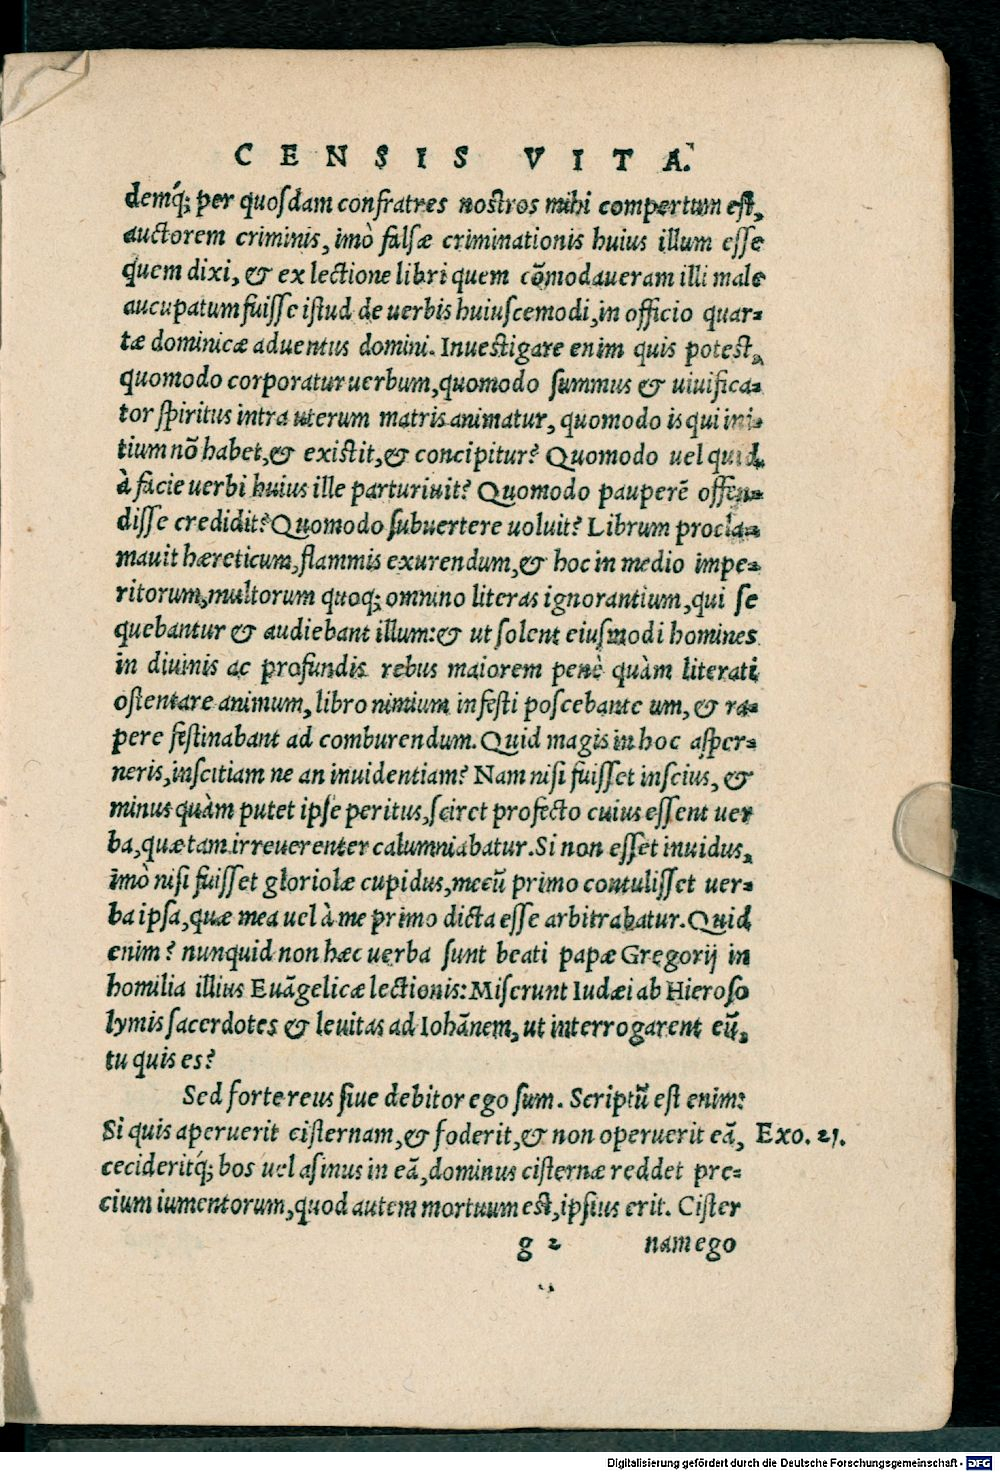 CENSIS VITA.
demq́; per quosdam confratres nostros mihi compertum est,
auctorem criminis, imò falsæ criminationis huius illum esse
quem dixi, & ex lectione libri quem cōmodaueram illi male
aucupatum fuisse istud de uerbis huiuscemodi, in officio quar-
tæ dominicæ aduentus domini. Inuestigare enim quis potest,
quomodo corporatur uerbum, quomodo summus & uiuifica-
tor spiritus intra uterum matris animatur, quomodo is qui ini-
tium nō habet, & existit, & concipitur? Quomodo uel quid
à facie uerbi huius ille parturiuit? Quomodo pauperē offen-
disse credidit? Quomodo subuertere uoluit? Librum procla-
mauit hæreticum, flammis exurendum, & hoc in medio impe-
ritorum, multorum quoq; omnino literas ignorantium, qui se
quebantur & audiebant illum: & ut solent eiusmodi homines
in diuinis ac profundis rebus maiorem penè quàm literati
ostentare animum, libro nimium infesti poscebant e um, & ra-
pere festinabant ad comburendum. Quid magis in hoc asper-
neris, inscitiam ne an inuidentiam? Nam nisi fuisset inscius, &
minus quàm putet ipse peritus, sciret profecto cuius essent uer
ba, quæ tam irreuerenter calumniabatur. Si non esset inuidus,
imò nisi fuisset gloriolæ cupidus, mecū primo contulisset uer-
ba ipsa, quæ mea uel à me primo dicta esse arbitrabatur. Quid
enim? nunquid non hæc uerba sunt beati papæ Gregorij in
homilia illius Euāgelicæ lectionis: Miserunt Iudæi ab Hieroso
lymis sacerdotes & leuitas ad Iohānem, ut interrogarent eū,
tu quis es?
Sed forte reus siue debitor ego sum. Scriptū est enim:
Si quis aperuerit cisternam, & foderit, & non operuerit eā, Exo. 21.
cecideritq́; bos uel asinus in eā, dominus cisternæ reddet pre-
cium iumentorum, quod autem mortuum est, ipsius erit. Cister
g 2 nam ego
Digitalisierung gefördert durch die Deutsche Forschungsgemeinschaft - DFG